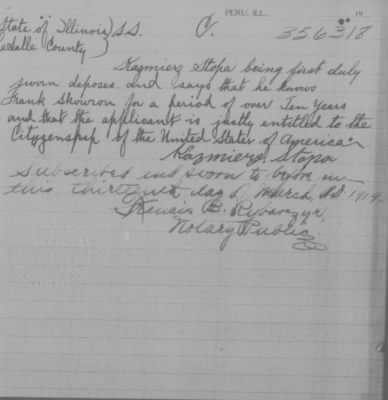 PERU, ILL. 19
State of Illinois) S.S. C. 356318
LaSalle County)
Kazmierz Stopa being first duly
sworn deposes and says that he knows
Frank Skowron for a period of over Ten Years
and that the applicant is justly entitled to the
Cityzenship of the United States of America
Kazmierz Stopa
Subscribed and sworn to before me
this thirteenth day of March, A.D. 1919.
Francis B. Rybarczyk,
Notary Public